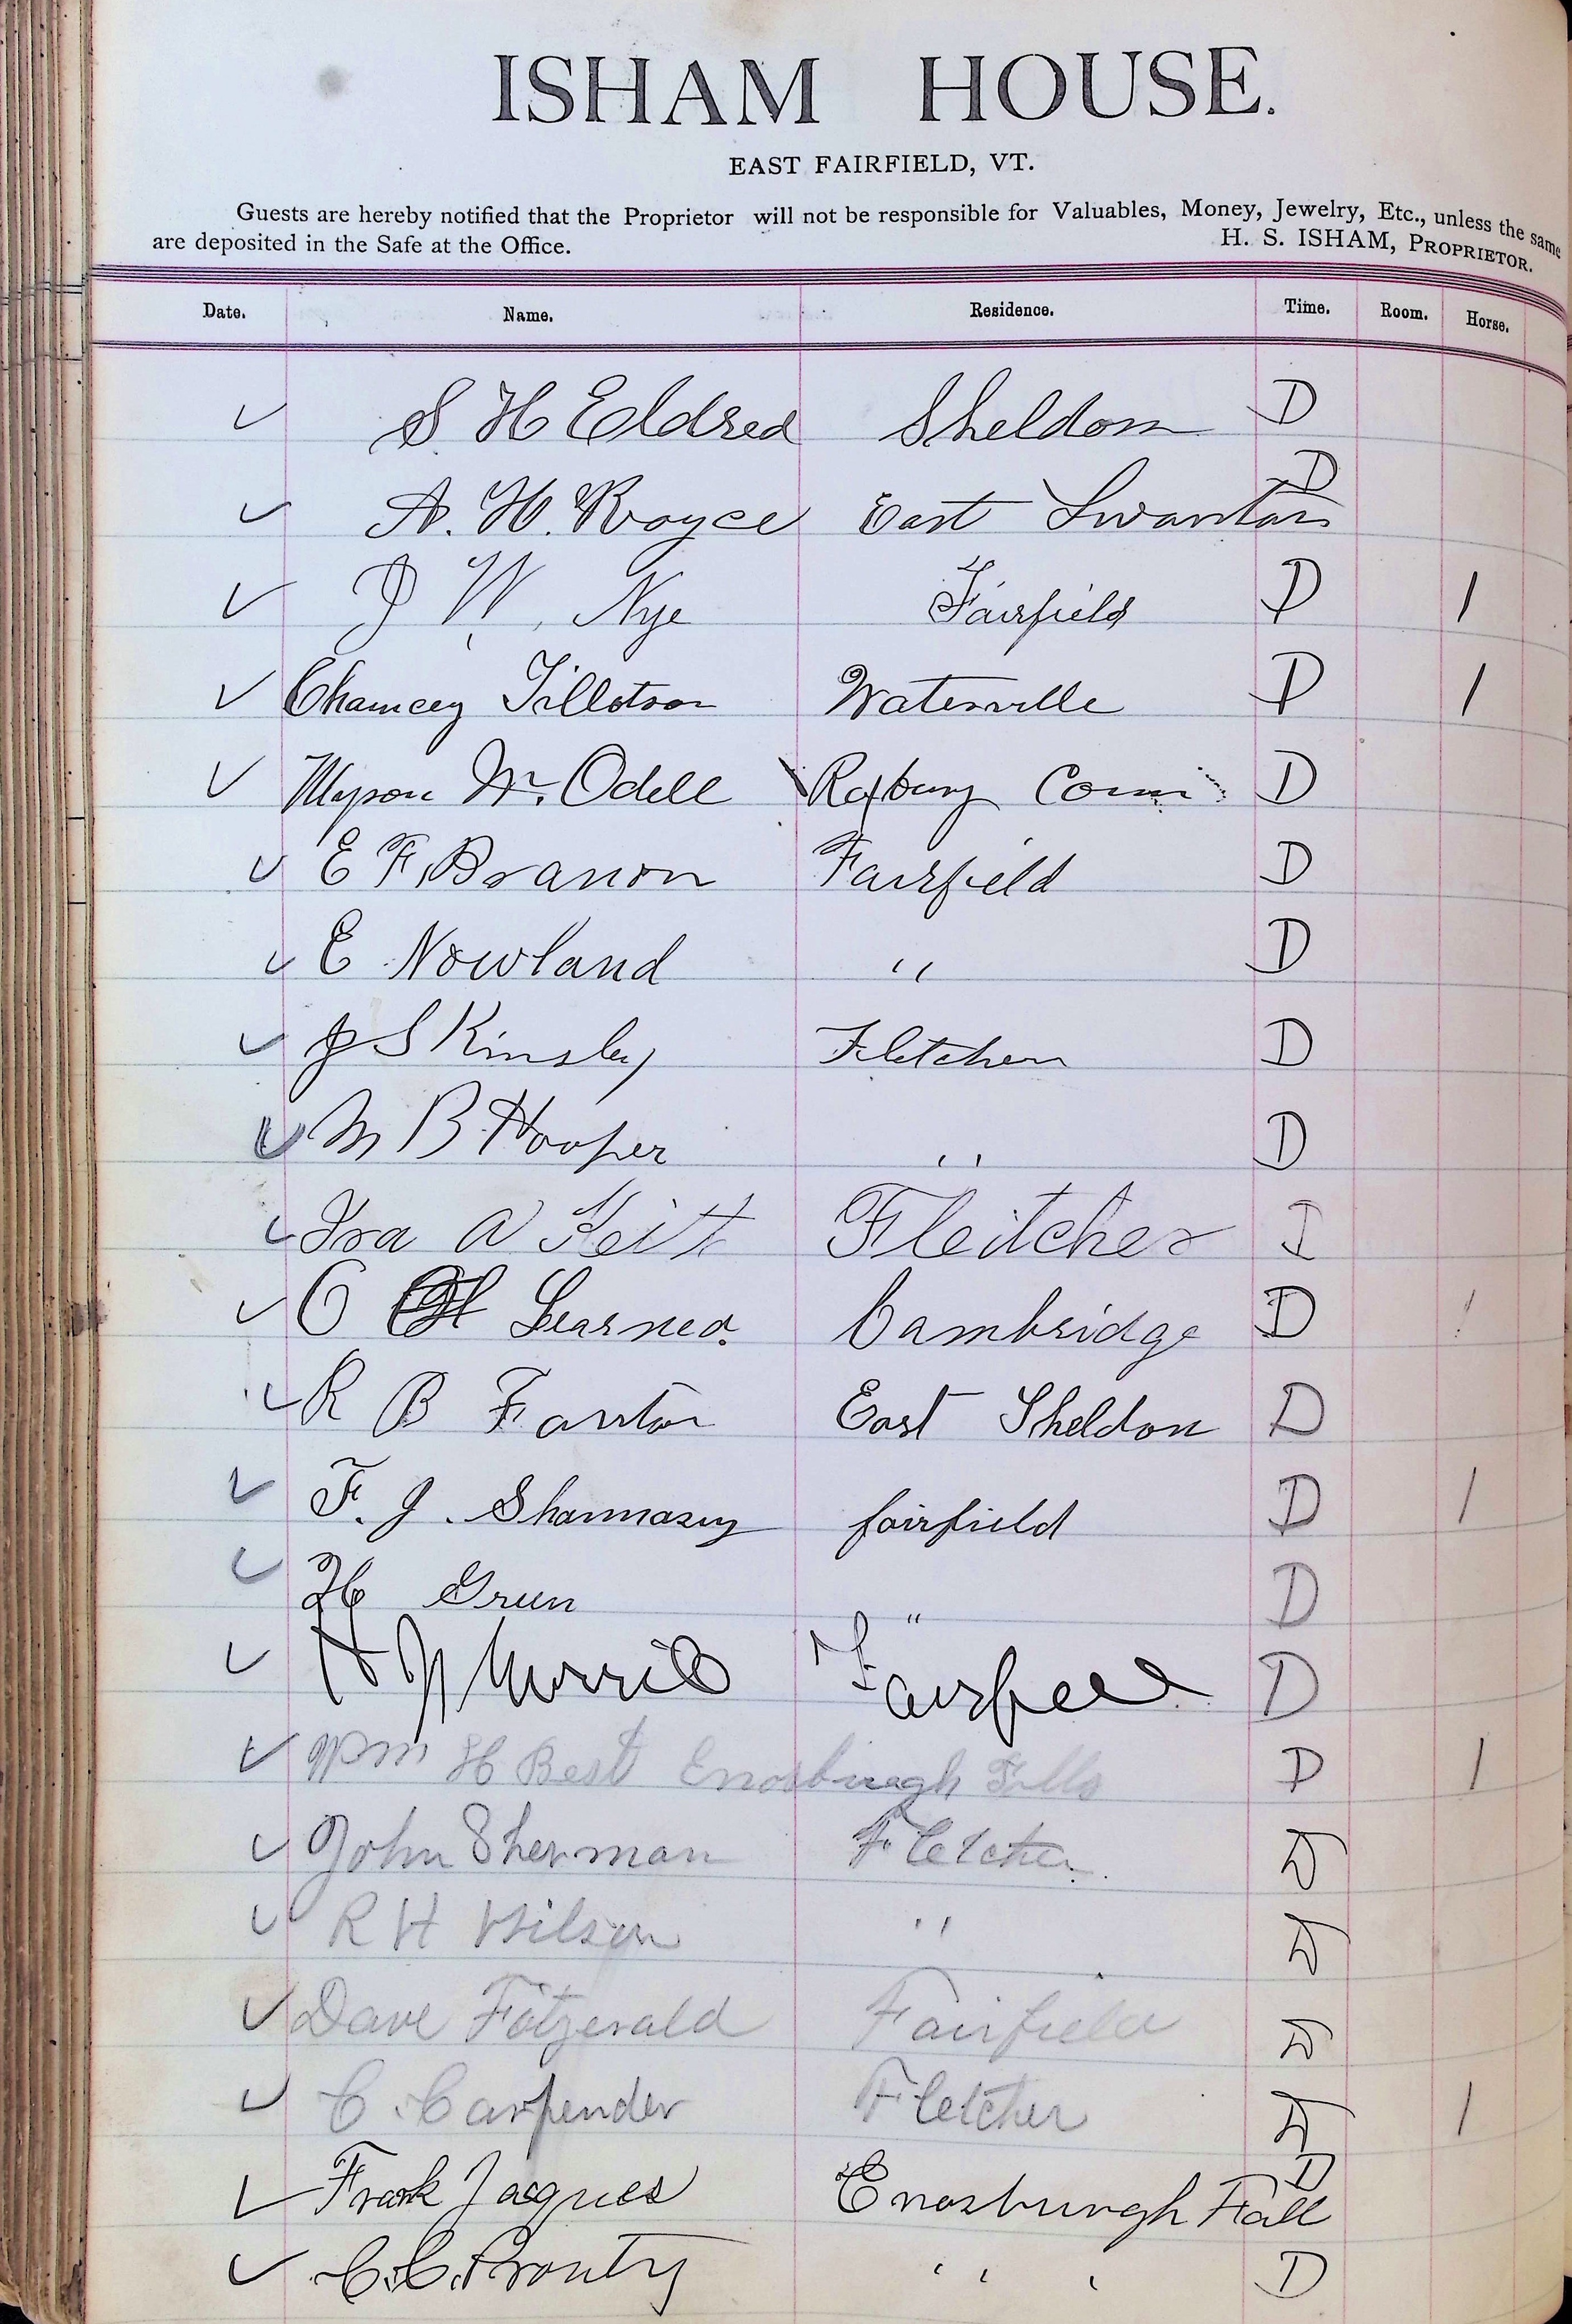 ISHAM HOUSE.
EAST FAIRFIELD, VT.
Guests are hereby notified that the Proprietor will not be responsible for Valuables, Money, Jewelry, Etc., unless the same
are deposited in the Safe at the Office. H. S. ISHAM, PROPRIETOR.
Date. Name. Residence. Time. Room. Horse.
✓ S H Eldred Sheldon D
✓ A. H. Royce East Swanton D
✓ J W. Nye Fairfield D 1
✓ Chauncey Tillotson Waterville D 1
✓ Myron W. Odell Roxbury Conn D
✓ E F. Branon Fairfield D
✓ E Nowland " D
✓ J S Kinsley Fletcher D
✓ M B Hooper " D
✓ Ira A Keith Fleitcher I
✓ C H Learned. Cambridge D 1
✓ R B Fanton East Sheldon D
✓ F. J. Shannasy fairfield D 1
✓ H Grun " D
✓ Morrill Fairfield D
✓ Wm H Best Enosburgh Falls D 1
✓ John Sherman Fletcher. D
✓ R H Wilson " D
✓ Dave Fitzgerald Fairfield D
✓ C. Carpender Fletcher D 1
✓ Frank Jacques Enosburgh Fall D
✓ C. C. Prouty " " D